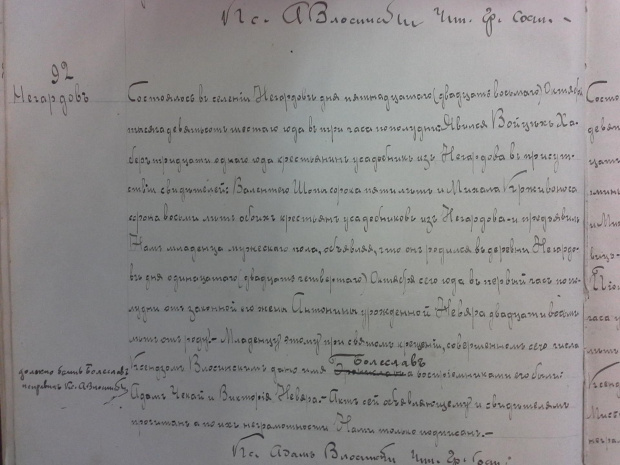 Кс. А Влосинскiй Чин. Гр. Сост. -
92
Негардовъ
Состоялось въ селенiи Негардовъ дня пятнадцатаго (двадцать восьмаго) Октября
тысяча девятьсотъ шестаго года въ три часа пополудни. Явился Войцѣхъ Ха-
беръ тридцати однаго года крестьянинъ усадебникъ изъ Негардова въ присут-
ствiи свидѣтелей: Валентого сорока пяти лѣтъ и Михала
сорока восьми лѣтъ обоихъ крестьянъ усадебниковъ изъ Негардова и предъявилъ
Намъ младенца мужескаго пола, объявляя, что онъ родился въ деревни Негардо-
въ дня одинадцатаго (двадцать четвертаго) Октября сего года въ первый часъ попо-
лудни отъ законной его жены Антонины урожденной Невяра двадцати восьми
лѣтъ отъ роду. - Младенцу этому при святомъ крещенiи, совершенномъ сего числа
Ксендзомъ Влосинскимъ дано имя Болеславъ а воспрiемниками его были
должно быть Болеславъ
поправилъ Кс. А Влосинскiй
Адамъ Чекай и Викторiя Невяра. - Актъ сей объявляющему и свидѣтелямъ
прочитанъ а по ихъ неграмотности Нами только подписанъ. -
Кс. Адамъ Влосинскiй Чин. Гр. Сост.